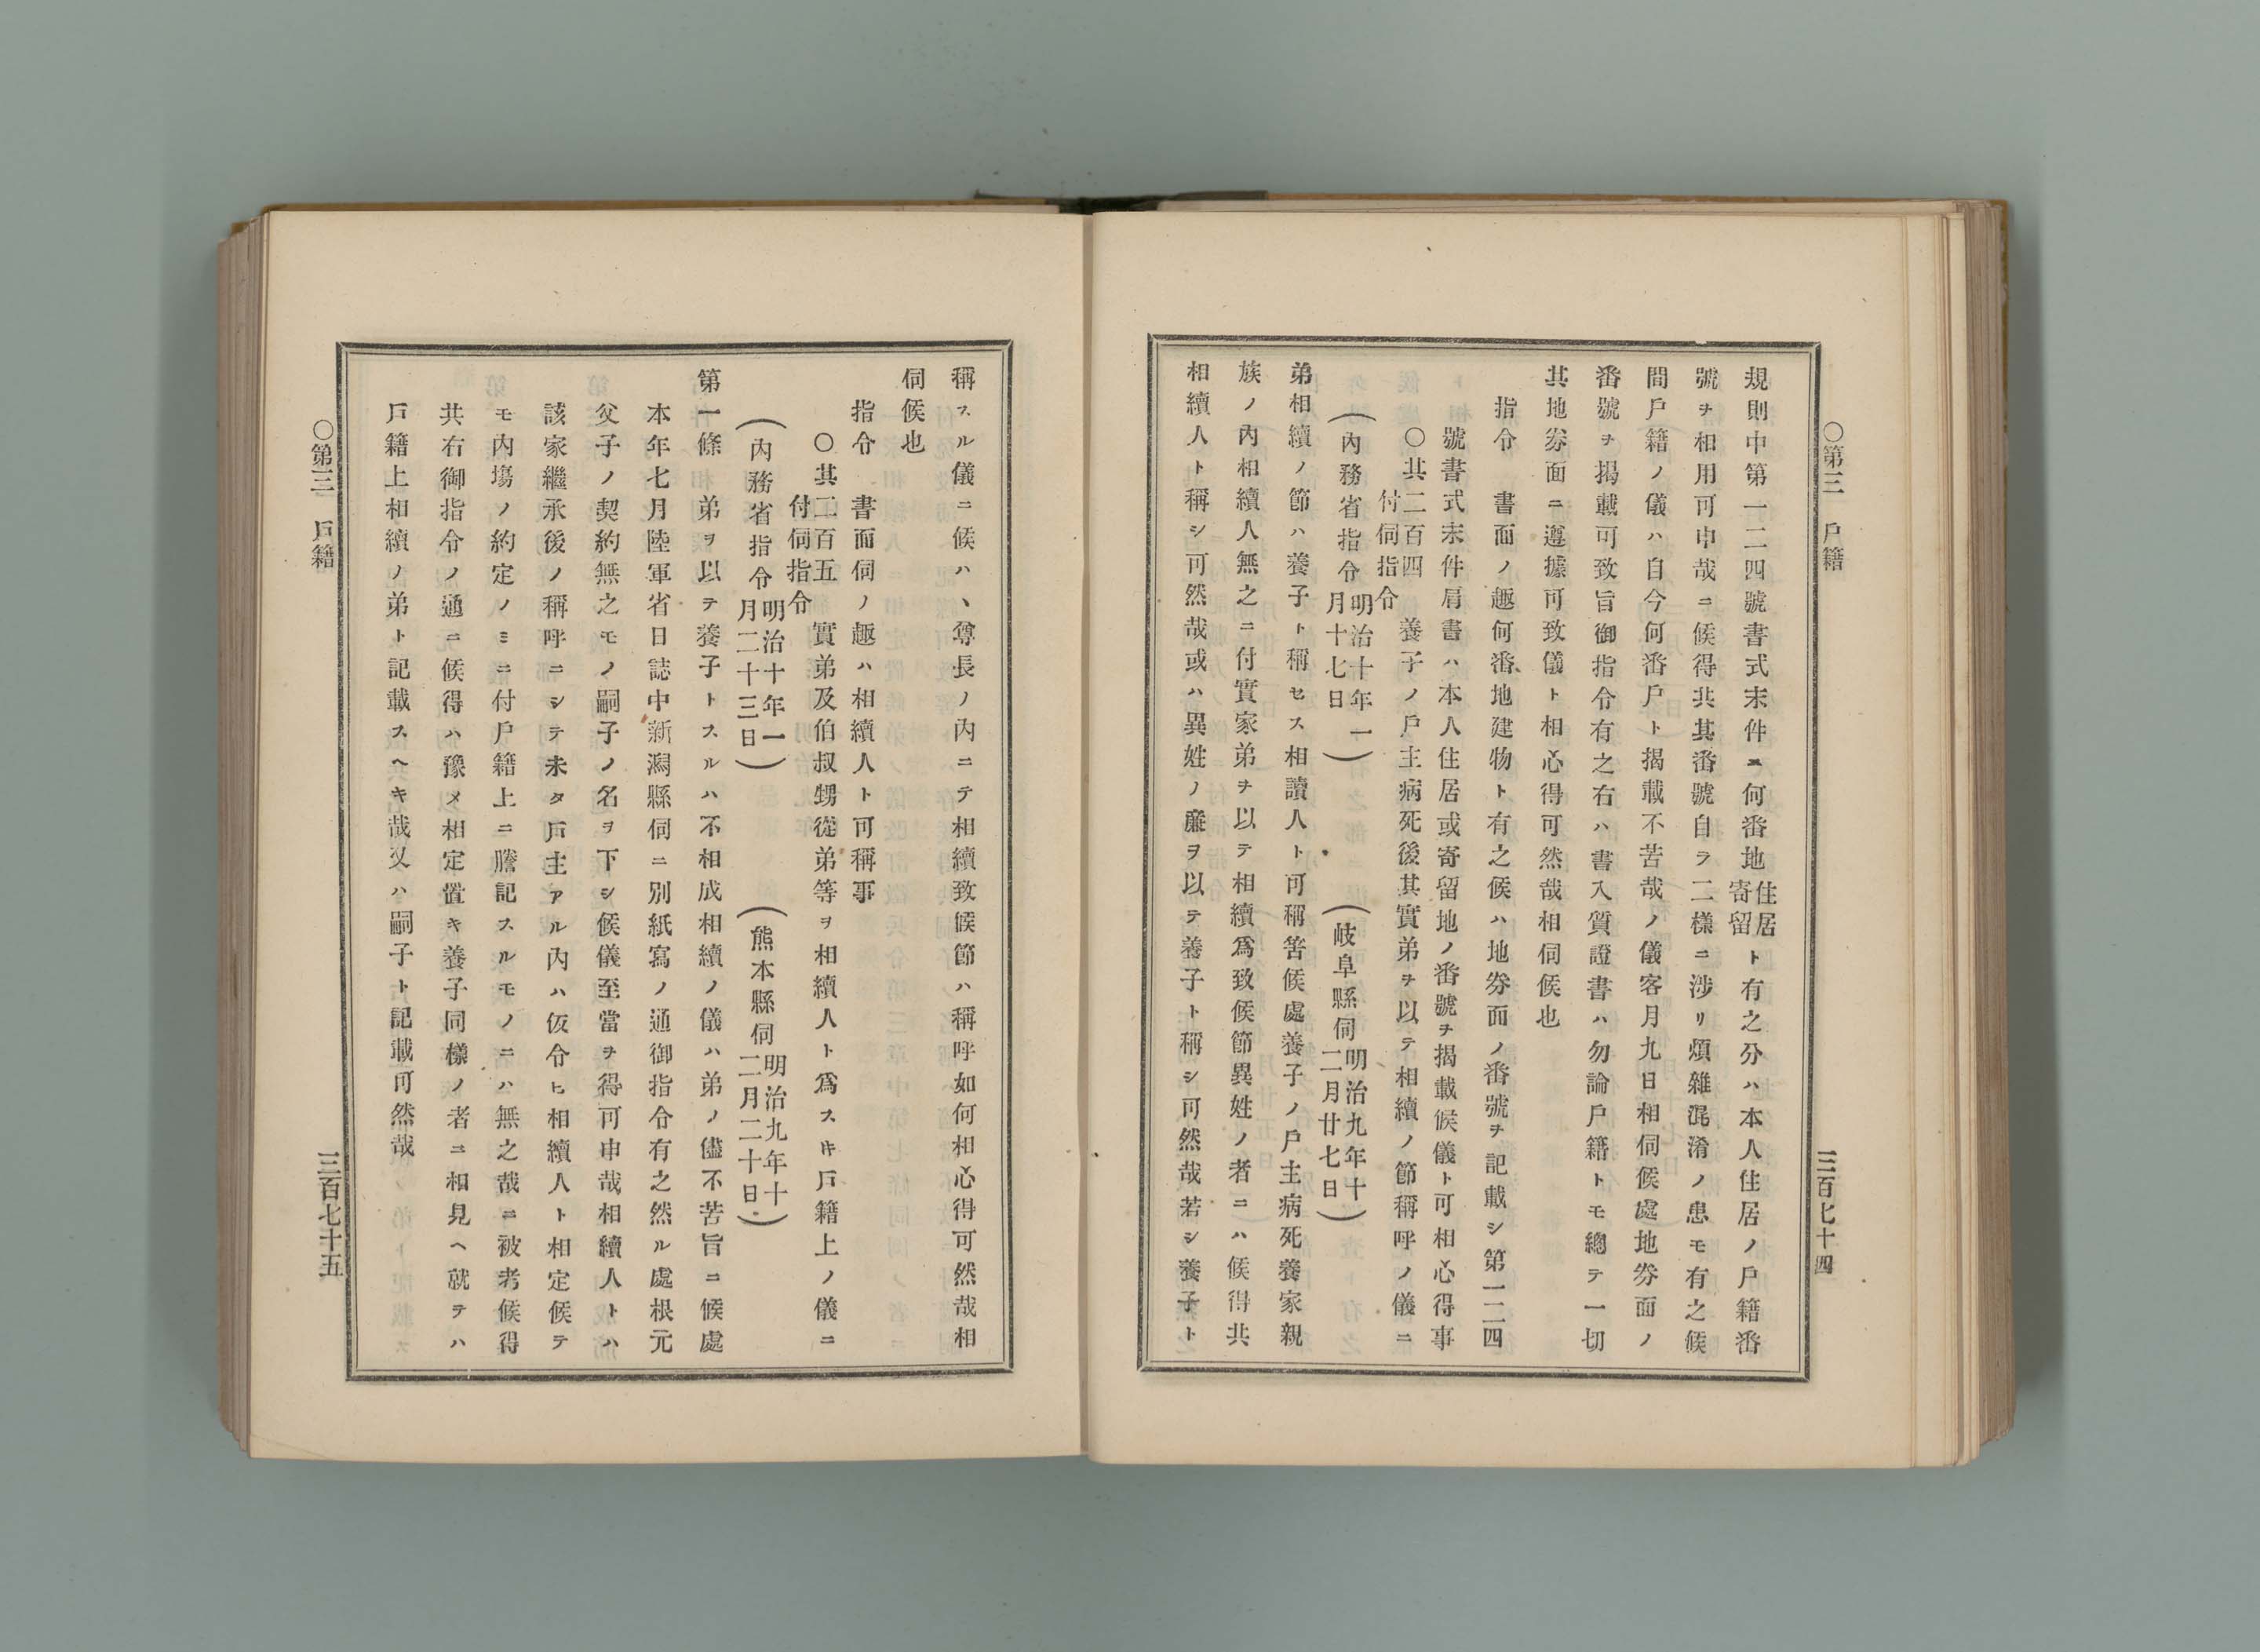 ○第三 戶籍 三百七十四
規則中第一二四號書式末件ニ何番地住居寄留ト有之分ハ本人住居ノ戶籍番
號ヲ相用可申哉ニ候得共其番號自ラ二樣ニ涉リ煩雜混淆ノ患モ有之候
間戶籍ノ儀ハ自今何番戶ト揭載不苦哉ノ儀客月九日相伺候處地劵面ノ
番號ヲ揭載可致旨御指令有之右ハ書入質證書ハ勿論戶籍トモ總テ一切
其地劵面ニ遵據可致儀ト相心得可然哉相伺候也
指令 書面ノ趣何番地建物ト有之候ハ地劵面ノ番號ヲ記載シ第一二四
號書式末件肩書ハ本人住居或寄留地ノ番號ヲ揭載候儀ト可相心得事
○其二百四 養子ノ戶主病死後其實弟ヲ以テ相續ノ節稱呼ノ儀ニ
付伺指令
(內務省指令明治十年一月十七日) (岐阜縣伺明治九年十二月廿七日)
弟相續ノ節ハ養子ト稱セス相讀人ト可稱筈候處養子ノ戶主病死養家親
族ノ內相續人無之ニ付實家弟ヲ以テ相續爲致候節異姓ノ者ニハ候得共
相續人ト稱シ可然哉或ハ異姓ノ廉ヲ以テ養子ト稱シ可然哉若シ養子ト
稱スル儀ニ候ハヽ尊長ノ內ニテ相續致候節ハ稱呼如何相心得可然哉相
伺候也
指令 書面伺ノ趣ハ相續人ト可稱事
○其二百五 實弟及伯叔甥從弟等ヲ相續人ト爲スキ戶籍上ノ儀ニ
付伺指令
(內務省指令明治十年一月二十三日) (熊本縣伺明治九年十二月二十日)
第一條 弟ヲ以テ養子トスルハ不相成相續ノ儀ハ弟ノ儘不苦旨ニ候處
本年七月陸軍省日誌中新潟縣伺ニ別紙寫ノ通御指令有之然ル處根元
父子ノ契約無之モノ嗣子ノ名ヲ下シ候儀至當ヲ得可申哉相續人トハ
該家繼承後ノ稱呼ニシテ未タ戶主アル內ハ仮令ヒ相續人ト相定候テ
モ內塲ノ約定ノミニ付戶籍上ニ謄記スルモノニハ無之哉ニ被考候得
共右御指令ノ通ニ候得ハ豫メ相定置キ養子同樣ノ者ニ相見ヘ就テハ
戶籍上相續ノ弟ト記載スヘキ哉又ハ嗣子ト記載可然哉
○第三 戶籍 三百七十五